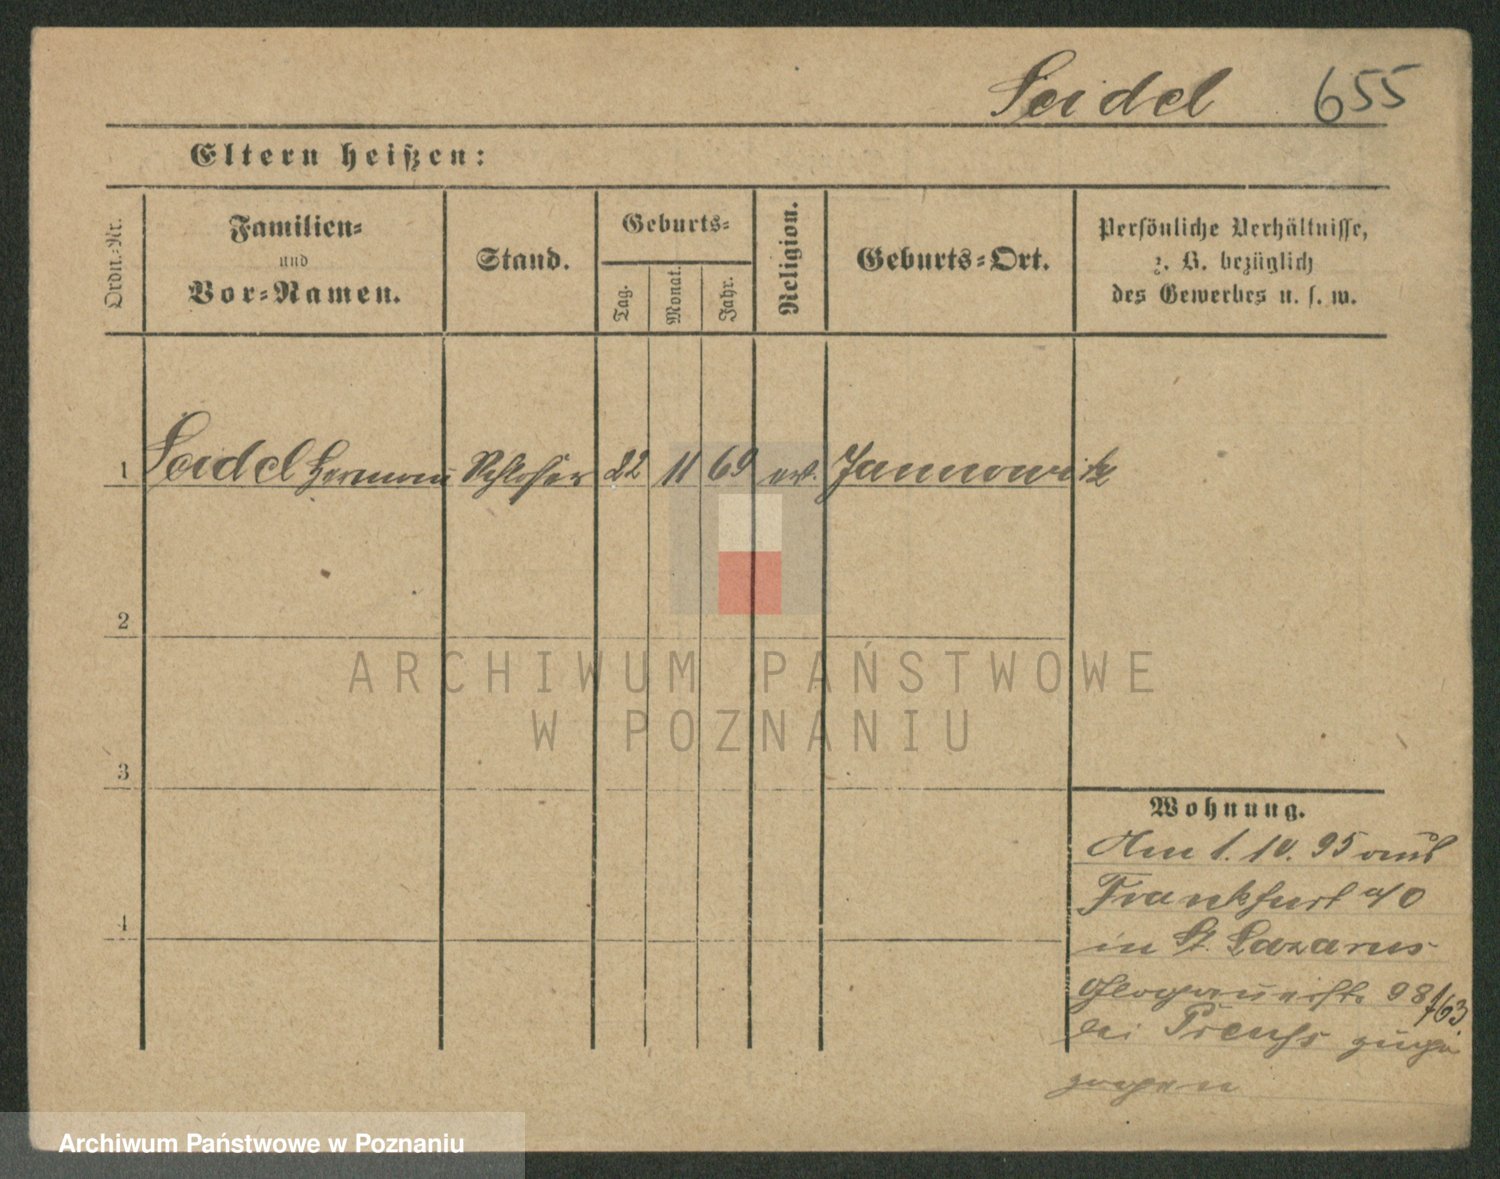 Seidel 655
Eltern heißen:
Ordn.-Nr.
Familien-
und
Vor-Namen.
Stand.
Geburts-
Tag.
Monat.
Jahr.
Religion.
Geburts-Ort.
Persönliche Verhältnisse,
z. B. bezüglich
des Gewerbes u. s. w.
1 Seidel Hermann Schlosser 22 11 69 ev. Jannowitz
2
3
4
ARCHIWUM PAŃSTWOWE
W POZNANIU
Wohnung.
Am 1. 10. 95 aus
Frankfurt a/O
in St. Lazarus
Glogauerstr. 98/163
bei Preuss zuge
zogen
Archiwum Państwowe w Poznaniu